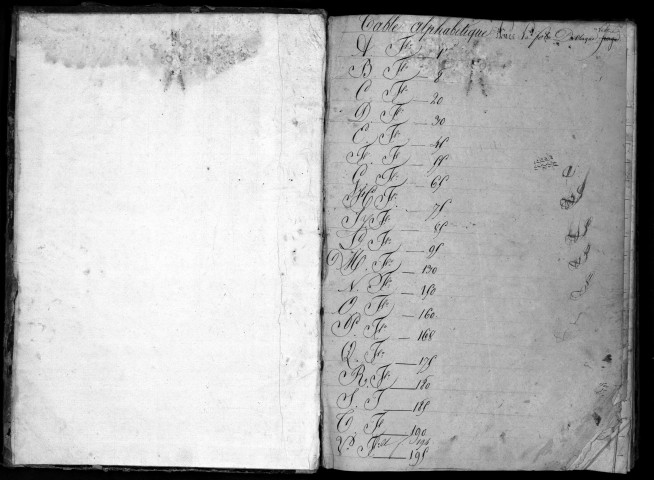 Table alphabetique
A F.º 1
B F.º 8
C F.º 20
D. F.º 30
E F.º 45
F. F.º 55
G. F.º 65
H F.º 75
J F.º 85
L F.º 95
M. F.º 130
N. F.º 150
O F.º 160
P F.º 168
Q. F.º 175
R. F.º 180
S. F 185
T. F 190
V. F.º 195